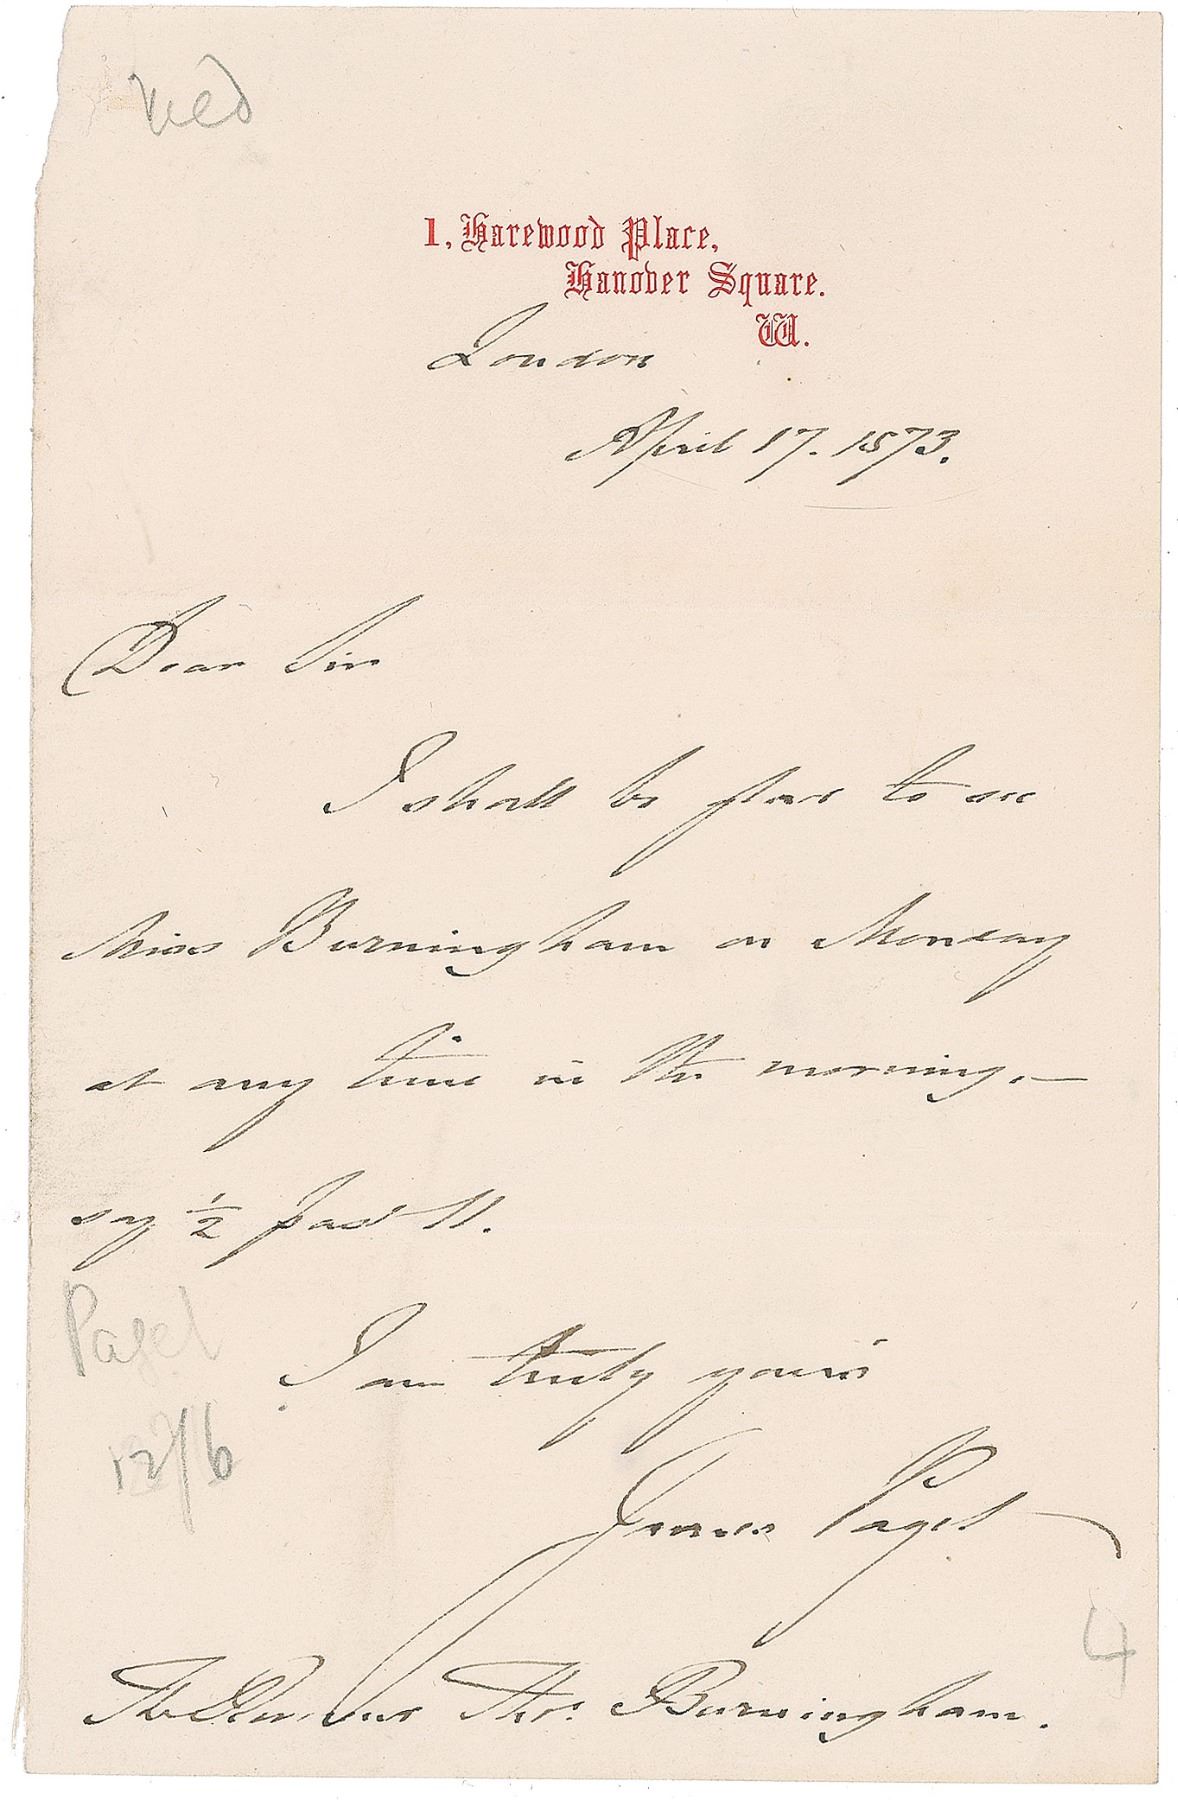 Med
1, Harewood Place,
Hanover Square.
W.
London
April 17. 1873.
Dear Sir
I shall be glad to see
Miss Burningham on Monday
at any time in the morning. —
say ½ past 11.
Paget
I am truly yours
12/6
James Paget
4
Thos. Burningham.